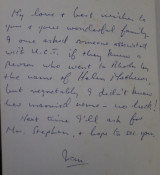 My love & best wishes to
you & your wonderful family.
I once asked someone associated
with U.C.T. if they knew a
person who went to Rhodes by
the name of Helen Mathews,
but regrettably I didn't know
her married name – no luck!
Next time I'll ask for
Mrs. Stephan, & hope to see you,